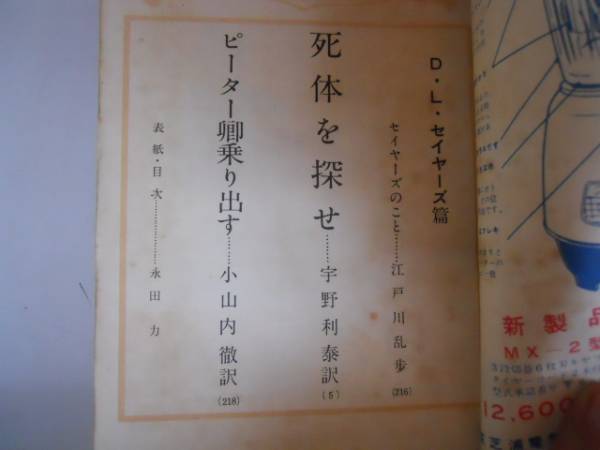 D・L・セイヤーズ篇
セイヤーズのこと……江戸川乱歩(216)
死体を探せ……宇野利泰訳(5)
ピーター卿乗り出す……小山内徹訳(218)
表紙・目次…………永田力
新製品
MX—2型
12,600